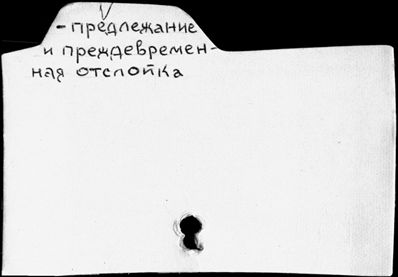 V
- предлежание
и преждевремен-
ная отслойка